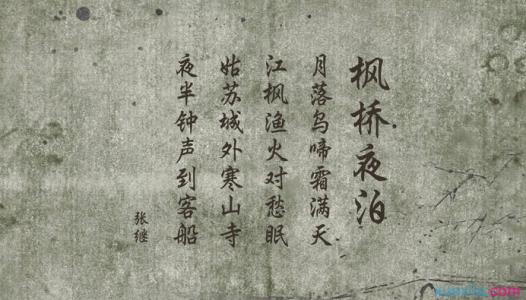 枫桥夜泊
月落乌啼霜满天
江枫渔火对愁眠
姑苏城外寒山寺
夜半钟声到客船
张继